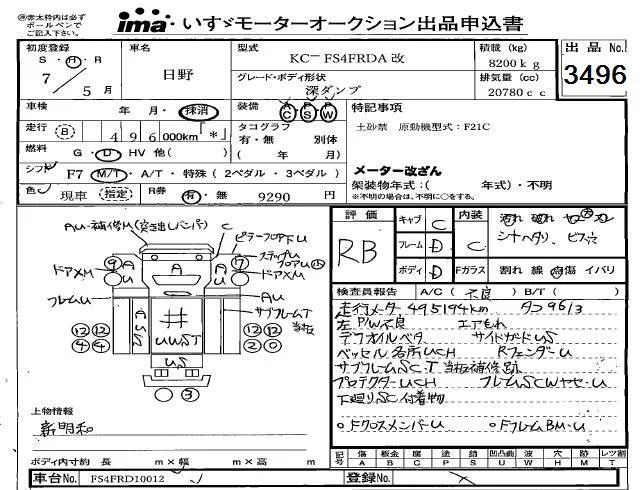 ㊟赤太枠内は必ず
ボールペンで
ご記入下さい。
ima いすゞモーターオークション出品申込書
初度登録
S・H・R
7/5月
車名
日野
型式
KC-FS4FRDA 改
グレード・ボディ形状
深ダンプ
積載 (kg)
8200kg
排気量 (cc)
20780cc
出品 No.
3496
車検 年 月・抹消
装備 AC PS PW
特記事項
走行 (B) 496 000km「*」
タコグラフ
有・無 別体
( 年 月)
土砂禁 原動機型式:F21C
燃料 G・D・HV 他( )
メーター改ざん
シフト F7 M/T・A/T・特殊(2ペダル・3ペダル)
架装物年式:( 年式)・不明
※不明の場合は、不明に○をする。
色 現車 (指定) R券 有・無 9290 円
評価
RB
キャブ C
フレーム D
ボディ D
内装 C
Fガラス
シートヘタリ、ビス穴
割れ 線 傷 イバリ
AU-補修M(突き出しバンパ)
C
ピラーフロアU
ステップU
フロアU
ドアXM
ドアXM
フレームU
AU
サブフレームT
当板
9 A U
A
A
17 A U
12 12
4 4
12 12
2 0
井
UWST
US
3
検査員報告 A/C ( 不良 ) B/T ( )
走行メーター 495194km タコ9613
左P/W不良 エアもれ
デフオイルベタ サイドガードUS
ベッセル名所UCH RフェンダーU
サブフレームSCT 当板補修跡
プロテクターUCH フレームSCWヤセ-U
下廻りSC付着物
○FクロスメンバーU ○FフレームBM-U
上物情報
新明和
ボディ内寸約 長 m×幅 m×高 m
記号 傷 A 板金 B 腐 C 塗 P 錆 S 凹凸曲 U 波 W 穴 H 跡 M 汚 T レツ割
車台No. FS4FRD10012
登録No.